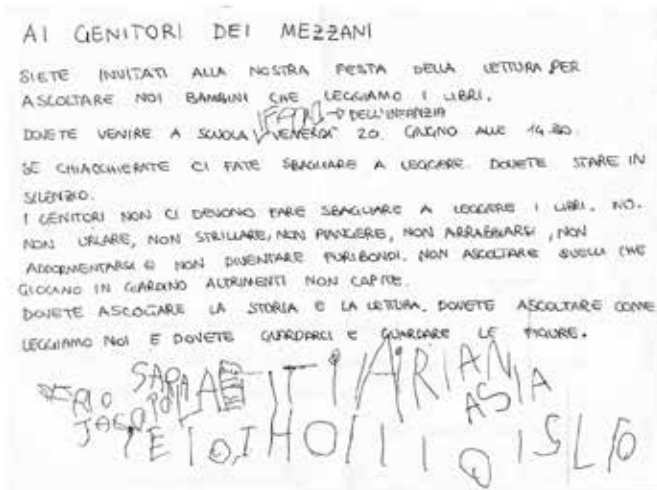 AI GENITORI DEI MEZZANI
SIETE INVITATI ALLA NOSTRA FESTA DELLA LETTURA PER
ASCOLTARE NOI BAMBINI CHE LEGGIAMO I LIBRI.
DELL'INFANZIA
DOVETE VENIRE A SCUOLA VENERDI' 20 GIUGNO ALLE 14.30
SE CHIACCHIERATE CI FATE SBAGLIARE A LEGGERE. DOVETE STARE IN
SILENZIO.
I GENITORI NON CI DEVONO FARE SBAGLIARE A LEGGERE I LIBRI. NO.
NON URLARE, NON STRILLARE, NON PIANGERE, NON ARRABBIARSI, NON
ADDORMENTARSI E NON DIVENTARE FURIBONDI. NON ASCOLTARE QUELLI CHE
GIOCANO IN GIARDINO ALTRIMENTI NON CAPITE.
DOVETE ASCOLTARE LA STORIA E LA LETTURA. DOVETE ASCOLTARE COME
LEGGIAMO NOI E DOVETE GUARDARCI E GUARDARE LE FIGURE.
SARA ARIAN
ASIA